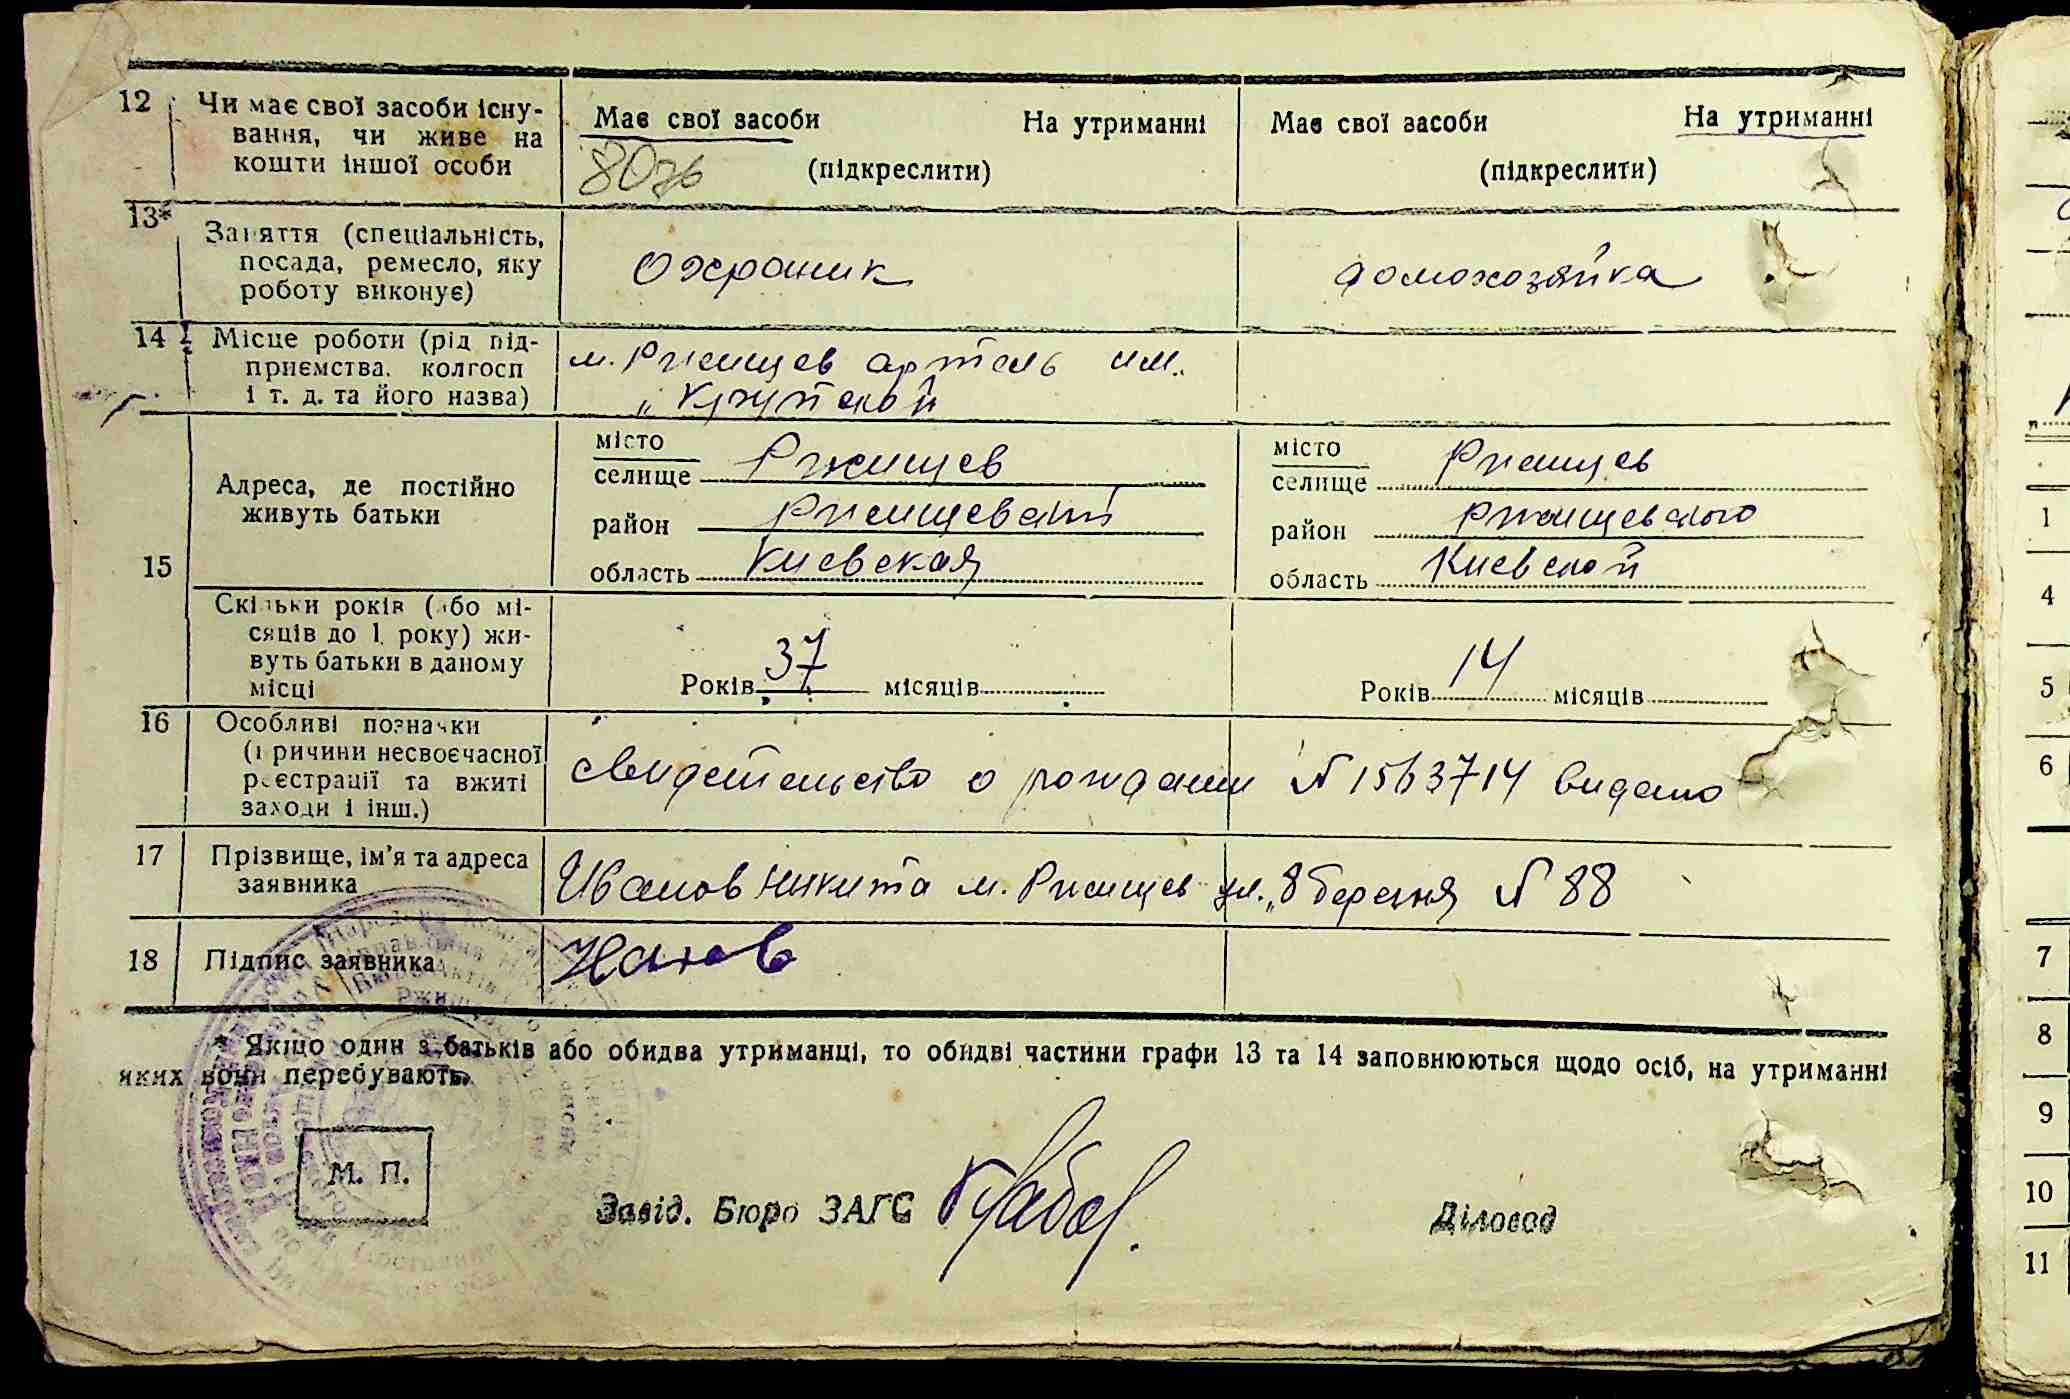 12 Чи має свої засоби існу-
вання, чи живе на
кошти іншої особи
Має свої засоби На утриманні
(підкреслити)
Має свої засоби На утриманні
(підкреслити)
13* Заняття (спеціальність,
посада, ремесло, яку
роботу виконує)
Охраник
домохозяйка
14 Місце роботи (рід під-
приємства, колгосп
і т. д. та його назва)
м. Ржищев артель им.
„Крупской
15 Адреса, де постійно
живуть батьки
місто
селище Ржищев
район Ржищевский
область Киевская
місто
селище Ржищев
район Ржищевского
область Киевской
Скільки років (або мі-
сяців до 1 року) жи-
вуть батьки в даному
місці
Років 37 місяців
Років 14 місяців
16 Особливі позначки
(причини несвоєчасної
реєстрації та вжиті
заходи і інш.)
свидетельство о рождении № 1563714 видано
17 Прізвище, ім'я та адреса
заявника
Иванов Никита м. Ржищев ул. „8 березня № 88
18 Підпис заявника
* Якщо один з батьків або обидва утриманці, то обидві частини графи 13 та 14 заповнюються щодо осіб, на утриманні
яких вони перебувають.
М. П.
Завід. Бюро ЗАГС
Діловод
1
4
5
6
7
8
9
10
11